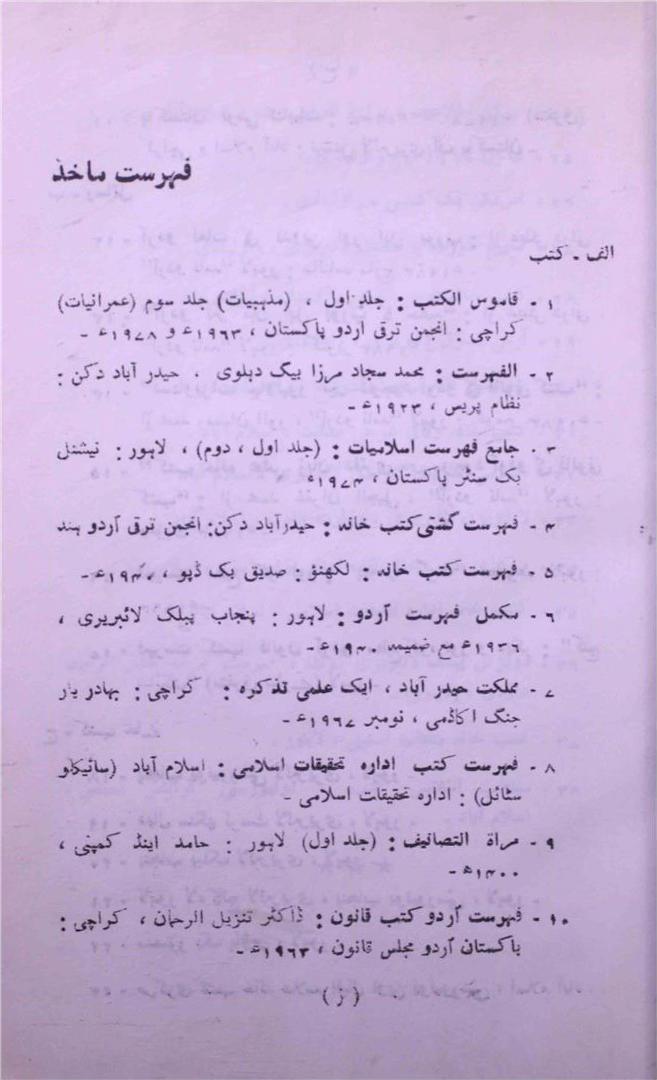 فہرست ماخذ
الف - کتب
۱ - قاموس الکتب : جلد اول ، (مذہبیات) جلد سوم (عمرانیات)
کراچی : انجمن ترقی اردو پاکستان ، ۱۹۶۳ء و ۱۹۷۸ء -
۲ - الفہرست : محمد سجاد مرزا بیگ دہلوی ، حیدر آباد دکن :
نظام پریس ، ۱۹۲۳ء -
۳ - جامع فہرست اسلامیات : (جلد اول ، دوم) ، لاہور : نیشنل
بک سنٹر پاکستان ، ۱۹۷۴ء
۴ - فہرست گشتی کتب خانہ : حیدرآباد دکن : انجمن ترقی اردو ہند
۵ - فہرست کتب خانہ : لکھنؤ : صدیق بک ڈپو ، ۱۹۴۰ء -
۶ - مکمل فہرست اُردو : لاہور : پنجاب پبلک لائبریری ،
۱۹۳۶ء مع ضمیمہ ۱۹۴۰ء -
۷ - مملکت حیدر آباد ، ایک علمی تذکرہ : کراچی : بہادر یار
جنگ اکاڈمی ، نومبر ۱۹۶۷ء -
۸ - فہرست کتب ادارہ تحقیقات اسلامی : اسلام آباد (سائیکلو
سٹائل) : ادارہ تحقیقات اسلامی -
۹ - مراۃ التصانیف : (جلد اول) لاہور : حامد اینڈ کمپنی ،
۱۴۰۰ء -
۱۰ - فہرست اُردو کتب قانون : ڈاکٹر تنزیل الرحمان ، کراچی :
پاکستان اُردو مجلس قانون ، ۱۹۶۳ء -